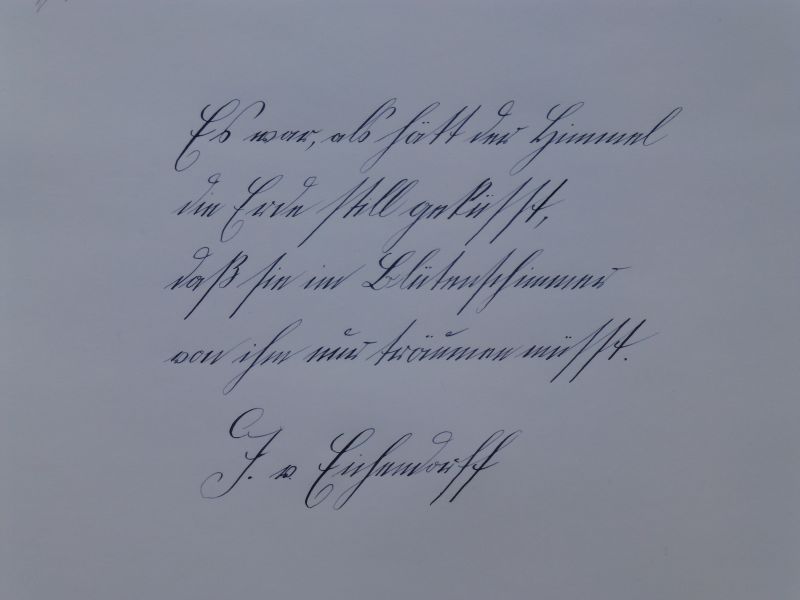 Es war, als hätt der Himmel
die Erde still geküsst,
daß sie im Blütenschimmer
von ihm nur träumen müsst.
J. v. Eichendorff